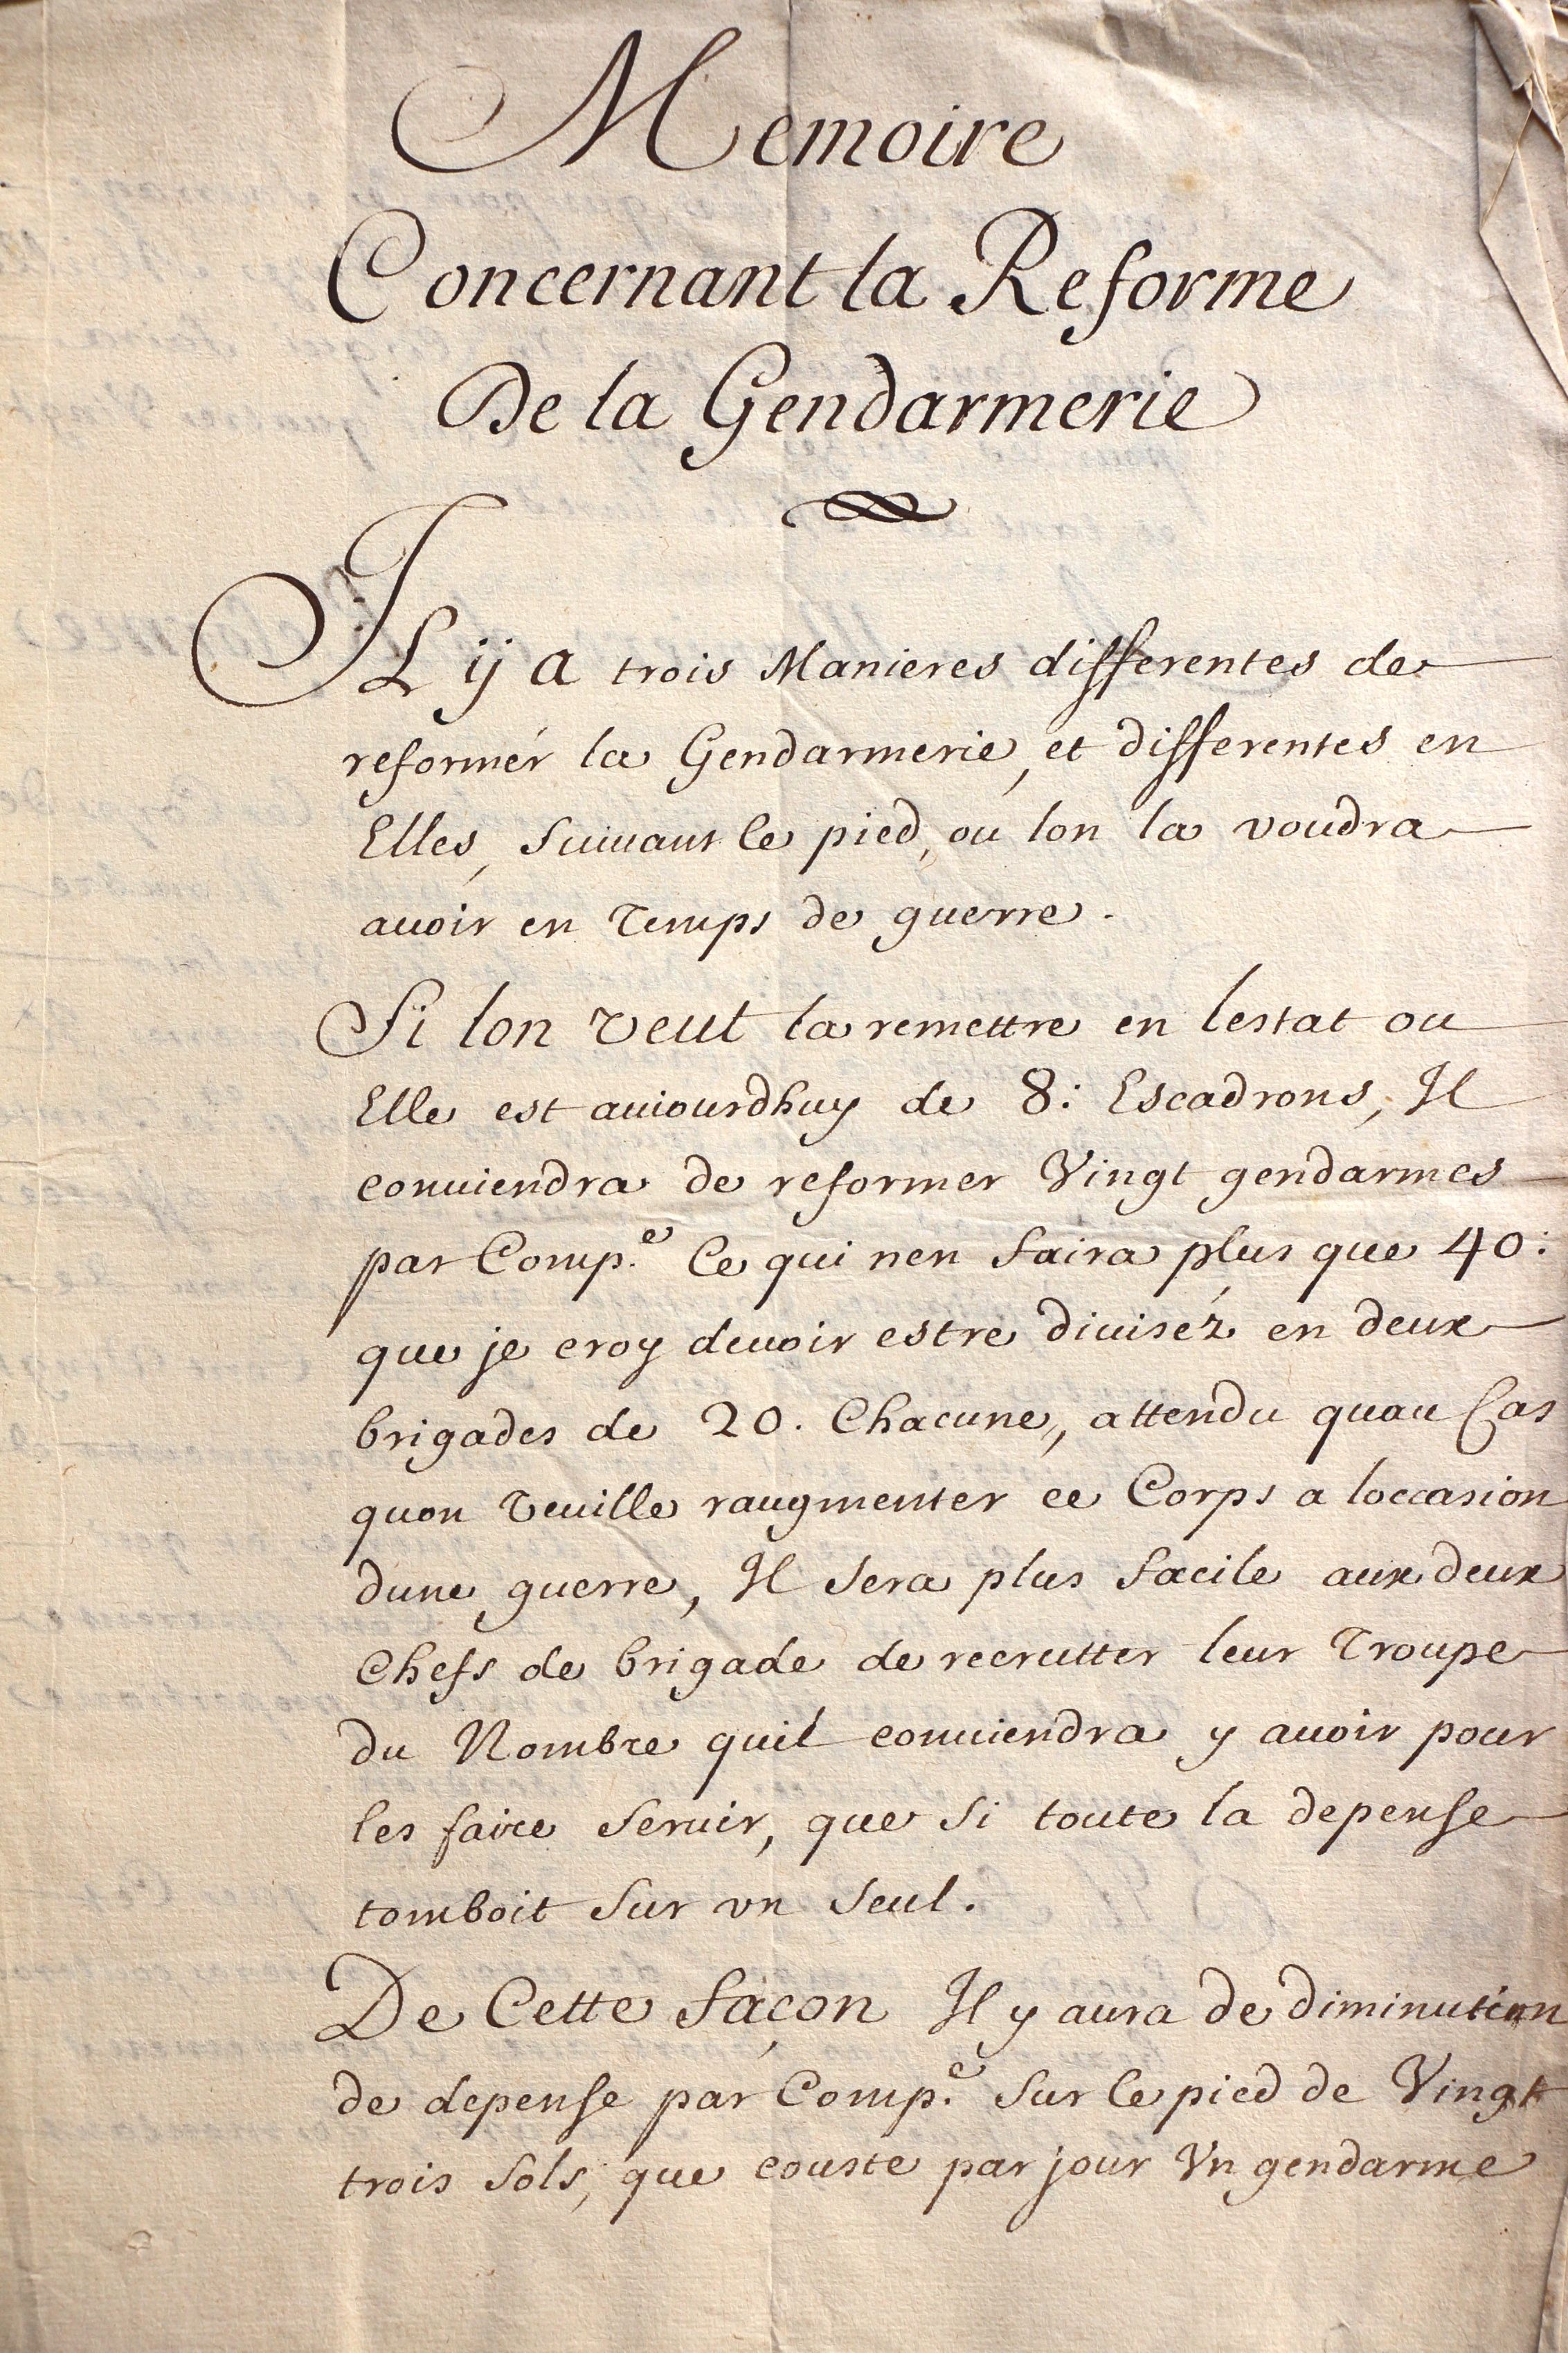 Memoire
Concernant la Reforme
De la Gendarmerie
IL ÿ a trois Manieres differentes de
reformér la Gendarmerie, et differentes en
Elles, Suiuant le pied, ou lon la voudra
auoir en Temps de guerre.
Si lon veut la remettre en lestat ou
Elle est auiourdhuy de 8: Escadrons, Il
conuiendra de reformer Vingt gendarmes
par Comp.e Ce qui nen faira plus que 40:
que je croy deuoir estre diuiséz en deux
brigades de 20. Chacune, attendu quau Cas
quon veuille raugmenter ce Corps a loccasion
dune guerre, Il Sera plus facile aux deux
Chefs de brigade de recrutter leur Troupe
du Nombre quil conuiendra y auoir pour
les faire Seruir, que Si toute la depense
tomboit Sur vn Seul.
De Cette façon Il y aura de diminution
de depense par Comp.e Sur le pied de Vingt
trois Sols, que couste par jour Vn gendarme